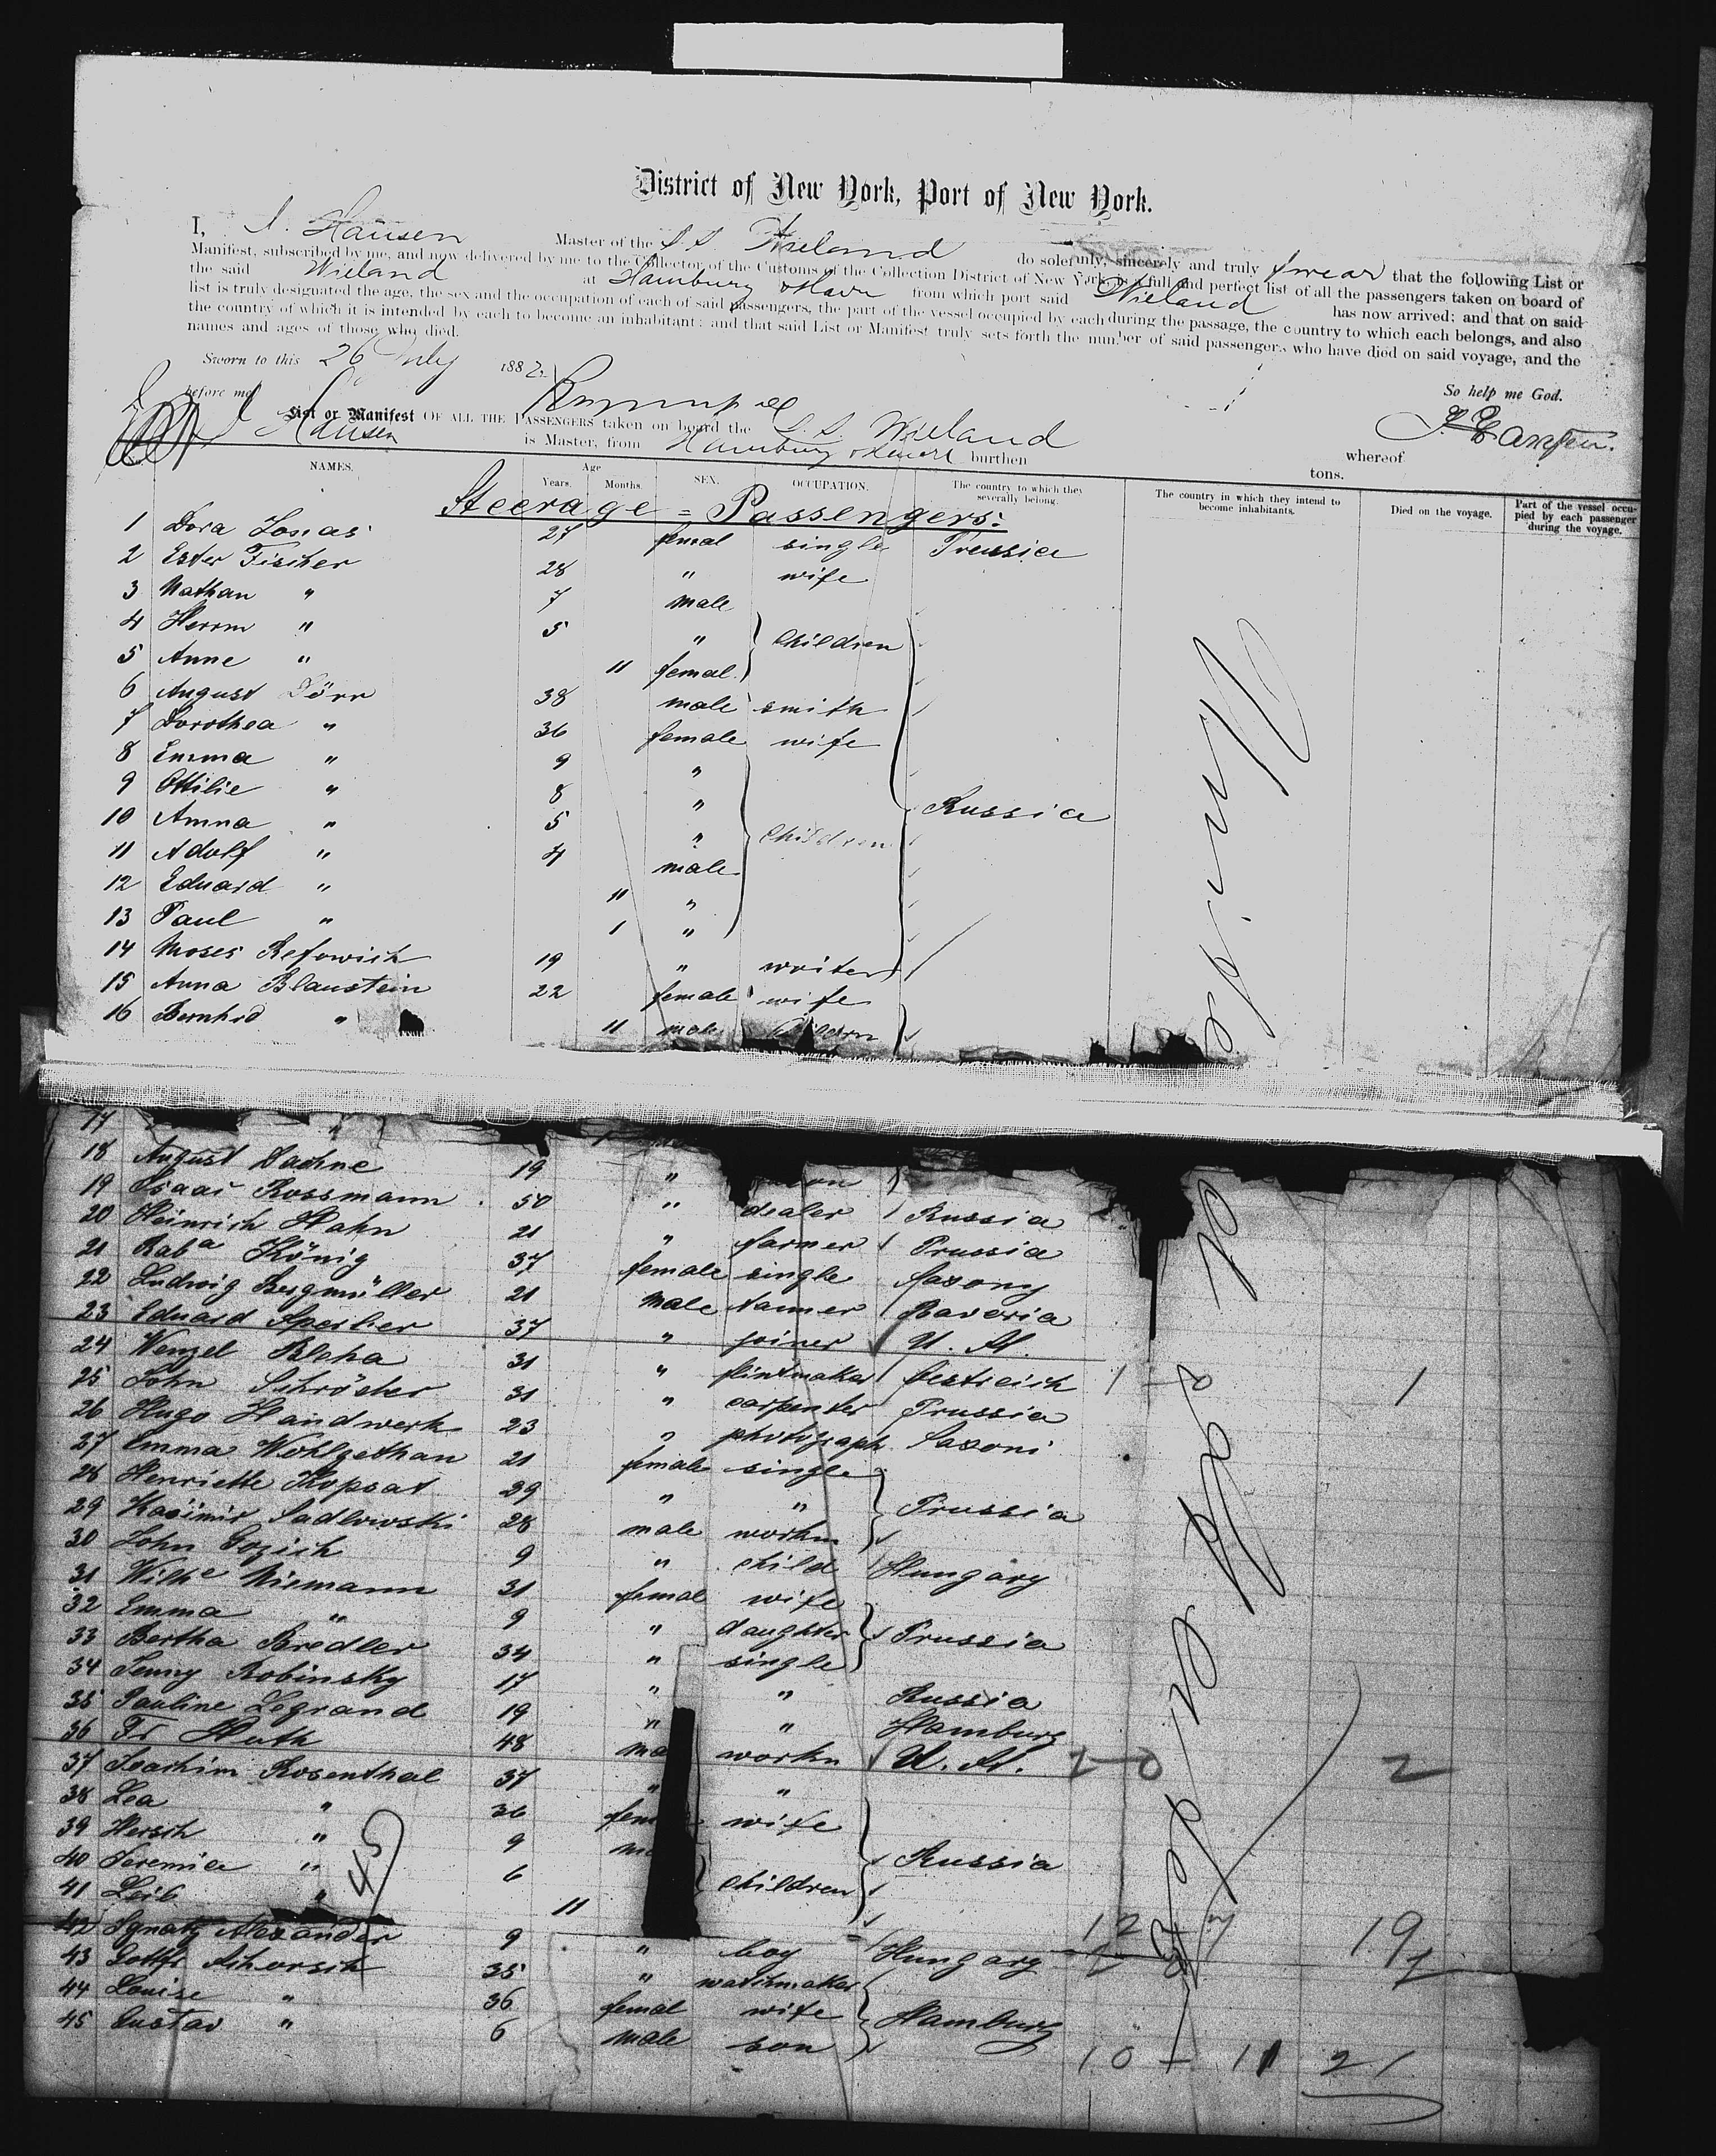 District of New York, Port of New York.
I, Hansen Master of the S.S. Wieland do solemnly, sincerely and truly swear that the following List or
Manifest, subscribed by me, and now delivered by me to the Collector of the Customs of the Collection District of New York, is a full and perfect list of all the passengers taken on board of
the said Wieland at Hamburg & Havre from which port said Wieland has now arrived; and that on said
list is truly designated the age, the sex and the occupation of each of said passengers, the part of the vessel occupied by each during the passage, the country to which each belongs, and also
the country of which it is intended by each to become an inhabitant; and that said List or Manifest truly sets forth the number of said passengers who have died on said voyage, and the
names and ages of those who died.
Sworn to this 26 July 1882
So help me God.
before me
List or Manifest OF ALL THE PASSENGERS taken on board the S.S. Wieland whereof
Hansen is Master, from Hamburg & Havre burthen tons.
NAMES. Age Years. Months. SEX. OCCUPATION. The country to which they severally belong. The country in which they intend to become inhabitants. Died on the voyage. Part of the vessel occupied by each passenger during the voyage.
Steerage = Passengers:
1 Dora Jonas 27 femal single Prussia
2 Ester Fischer 28 " wife
3 Nathan " 7 male
4 Herrm " 5 " children
5 Anne " 11 femal
6 August Dörr 38 male smith
7 Dorothea " 36 female wife
8 Emma " 9 "
9 Ottilie " 8 " Russia
10 Anna " 5 " children
11 Adolf " 4 male
12 Eduard " 11 "
13 Paul " 1 "
14 Moses Refowich 19 " writer
15 Anna Blaustein 22 female wife
16 Bernhd " 11 male
17
18 August Haehne 19 "
19 Isaac Rossmann 50 " dealer Russia
20 Heinrich Hahn 21 " farmer Prussia
21 Baba König 37 female single Saxony
22 Ludwig Bergmüller 21 male tanner Bavaria
23 Eduard Sperber 37 " joiner U. St.
24 Wenzel Bleha 31 " flintmaker Oestreich 1 - 0 1
25 John Schröder 31 " carpenter Prussia
26 Hugo Handwerk 23 " photograph Saxoni
27 Emma Wohlgethan 21 female single
28 Henriette Kopsat 29 " " Prussia
29 Kasimir Sadlowski 28 male workm
30 John Gozich 9 " child Hungary
31 Wilhe Niemann 31 femal wife
32 Emma " 9 " daughter Prussia
33 Bertha Bredler 34 " single
34 Jenny Robinsky 17 " " Russia
35 Pauline Legrand 19 " " Hamburg
36 Fr Huth 48 ma workn U. St. 2-0 2
37 Joachim Rosenthal 37 " "
38 Lea " 36 fem wife
39 Hersch " 9 m
40 Jeremia " 6 children Russia
41 Leib " 11
45
42 Ignatz Alexander 9 " boy Hungary 12 7 19
43 Gottfr Aihorsch 35 " watchmaker
44 Louise " 36 femal wife Hamburg
45 Gustav " 6 male son
10 - 11 21